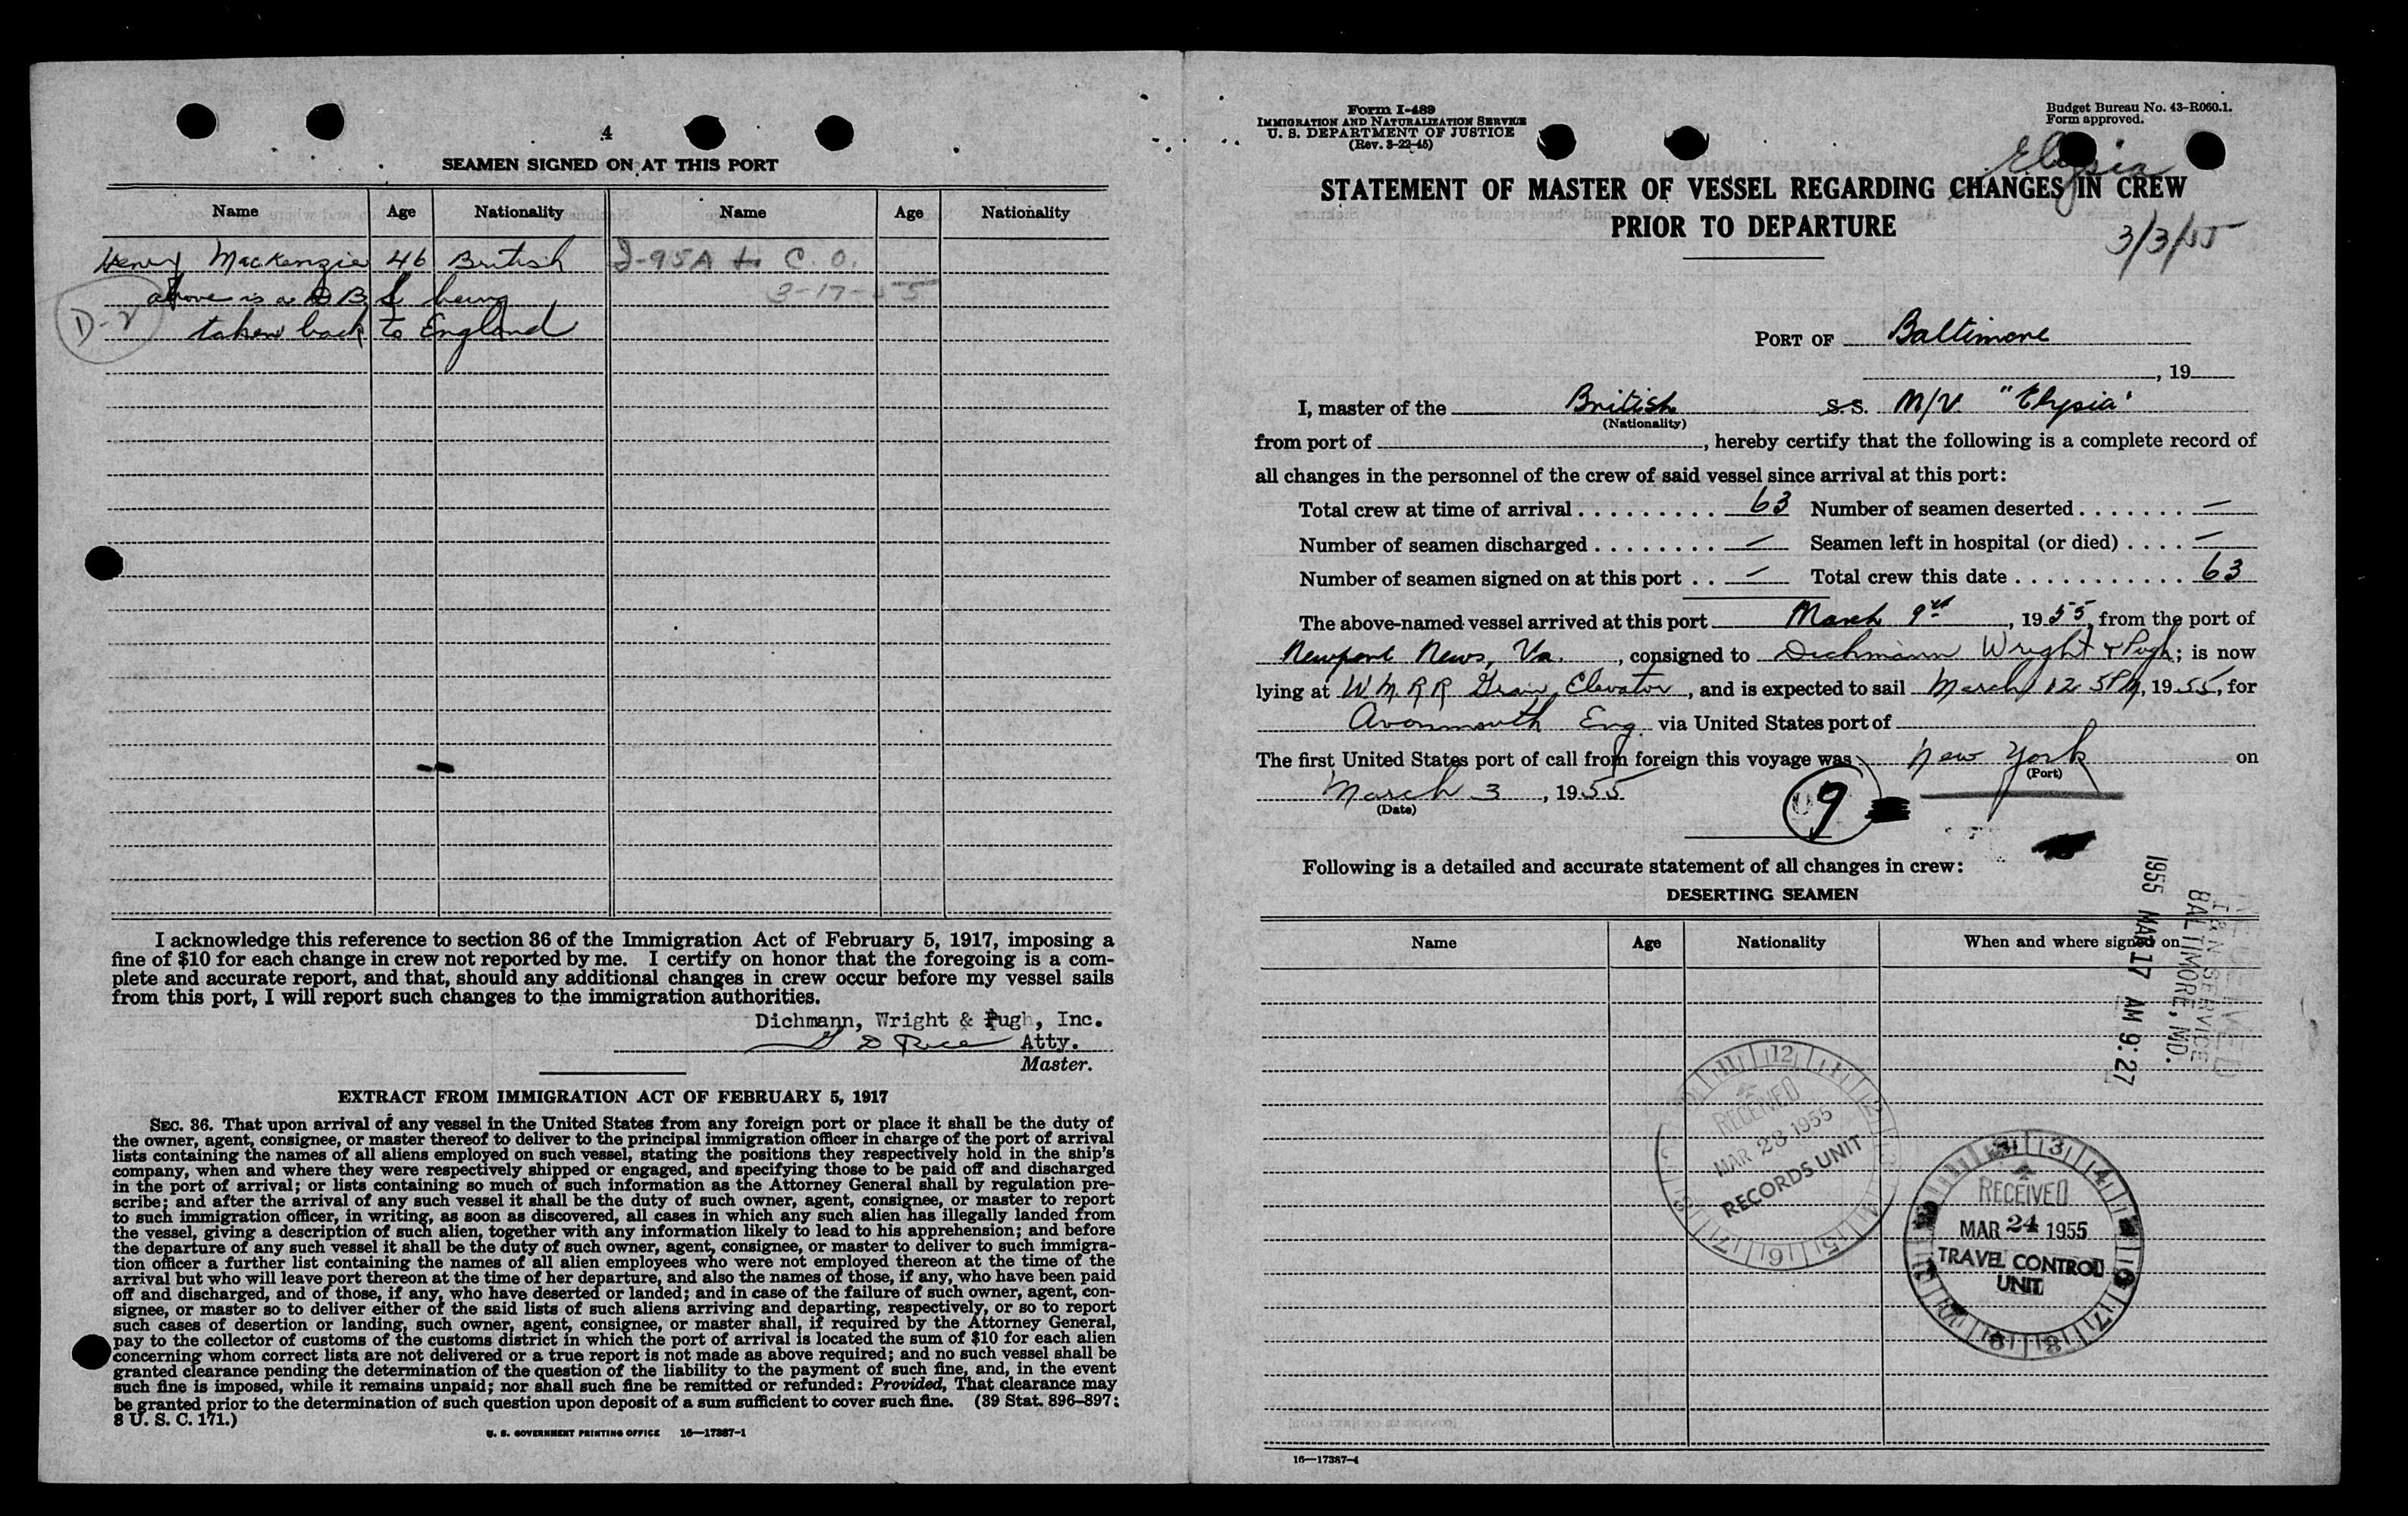 4
SEAMEN SIGNED ON AT THIS PORT
Name Age Nationality Name Age Nationality
Henry Mackenzie 46 British I-95A to C. O.
above is a D B S being 3-17-55
D-2 taken back to England
I acknowledge this reference to section 36 of the Immigration Act of February 5, 1917, imposing a
fine of $10 for each change in crew not reported by me. I certify on honor that the foregoing is a com-
plete and accurate report, and that, should any additional changes in crew occur before my vessel sails
from this port, I will report such changes to the immigration authorities.
Dichmann, Wright & Pugh, Inc.
D Rice Atty.
Master.
EXTRACT FROM IMMIGRATION ACT OF FEBRUARY 5, 1917
SEC. 36. That upon arrival of any vessel in the United States from any foreign port or place it shall be the duty of
the owner, agent, consignee, or master thereof to deliver to the principal immigration officer in charge of the port of arrival
lists containing the names of all aliens employed on such vessel, stating the positions they respectively hold in the ship's
company, when and where they were respectively shipped or engaged, and specifying those to be paid off and discharged
in the port of arrival; or lists containing so much of such information as the Attorney General shall by regulation pre-
scribe; and after the arrival of any such vessel it shall be the duty of such owner, agent, consignee, or master to report
to such immigration officer, in writing, as soon as discovered, all cases in which any such alien has illegally landed from
the vessel, giving a description of such alien, together with any information likely to lead to his apprehension; and before
the departure of any such vessel it shall be the duty of such owner, agent, consignee, or master to deliver to such immigra-
tion officer a further list containing the names of all alien employees who were not employed thereon at the time of the
arrival but who will leave port thereon at the time of her departure, and also the names of those, if any, who have been paid
off and discharged, and of those, if any, who have deserted or landed; and in case of the failure of such owner, agent, con-
signee, or master so to deliver either of the said lists of such aliens arriving and departing, respectively, or so to report
such cases of desertion or landing, such owner, agent, consignee, or master shall, if required by the Attorney General,
pay to the collector of customs of the customs district in which the port of arrival is located the sum of $10 for each alien
concerning whom correct lists are not delivered or a true report is not made as above required; and no such vessel shall be
granted clearance pending the determination of the question of the liability to the payment of such fine, and, in the event
such fine is imposed, while it remains unpaid; nor shall such fine be remitted or refunded: Provided, That clearance may
be granted prior to the determination of such question upon deposit of a sum sufficient to cover such fine. (39 Stat. 896-897;
8 U. S. C. 171.)
U. S. GOVERNMENT PRINTING OFFICE 16—17387-1
Form I-489
IMMIGRATION AND NATURALIZATION SERVICE
U. S. DEPARTMENT OF JUSTICE
(Rev. 3-22-45)
Budget Bureau No. 43-R060.1.
Form approved.
Elysia
STATEMENT OF MASTER OF VESSEL REGARDING CHANGES IN CREW
PRIOR TO DEPARTURE
3/3/55
PORT OF Baltimore
, 19
I, master of the British S.S. M/V. "Elysia"
(Nationality)
from port of , hereby certify that the following is a complete record of
all changes in the personnel of the crew of said vessel since arrival at this port:
Total crew at time of arrival . . . . . . . . . . 63 Number of seamen deserted . . . . . . . —
Number of seamen discharged . . . . . . . . — Seamen left in hospital (or died) . . . . —
Number of seamen signed on at this port . . — Total crew this date . . . . . . . . . . . . 63
The above-named vessel arrived at this port March 9th, 1955, from the port of
Newport News, Va. , consigned to Dichmann Wright & Pugh; is now
lying at W M R R Grain Elevator, and is expected to sail March 12 5PM, 1955, for
Avonmouth Eng. via United States port of
The first United States port of call from foreign this voyage was New York on
(Port)
March 3, 1955
(Date)
9
Following is a detailed and accurate statement of all changes in crew:
DESERTING SEAMEN
Name Age Nationality When and where signed on
RECEIVED
I & N SERVICE
BALTIMORE, MD.
1955 MAR 17 AM 9:27
RECEIVED
MAR 23 1955
RECORDS UNIT
RECEIVED
MAR 24 1955
TRAVEL CONTROL
UNIT
16—17387-4